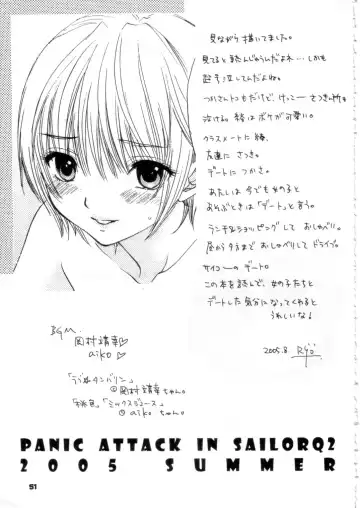 見ながら描いてました。
見てると転んじゅうんだよね…しかも
超手汗してんだよね。
つかさんトコもだけど、けっこーさつきん所も
泣ける。綾はボケが可愛い。
クラスメートに綾、
友達にさつき。
デートにつかさ。
あたしは今でも女の子と
あそぶときは「デート」と言う。
ランチ&ショッピングして おしゃべり。
昼から夕方まで おしゃべりして ドライブ。
サイコーのデート。
この本を読んで、女の子たちと
デートした気分になってくれると
うれしいな!
2005.8 Ryo
BGM.
岡村靖幸♡
aiko♡
「ラブタンバリン」
@岡村靖幸ちゃん。
「桃色」「ミックスジュース」
@ aikoちゃん。
PANIC ATTACK IN SAILORQ2
2005 SUMMER
51